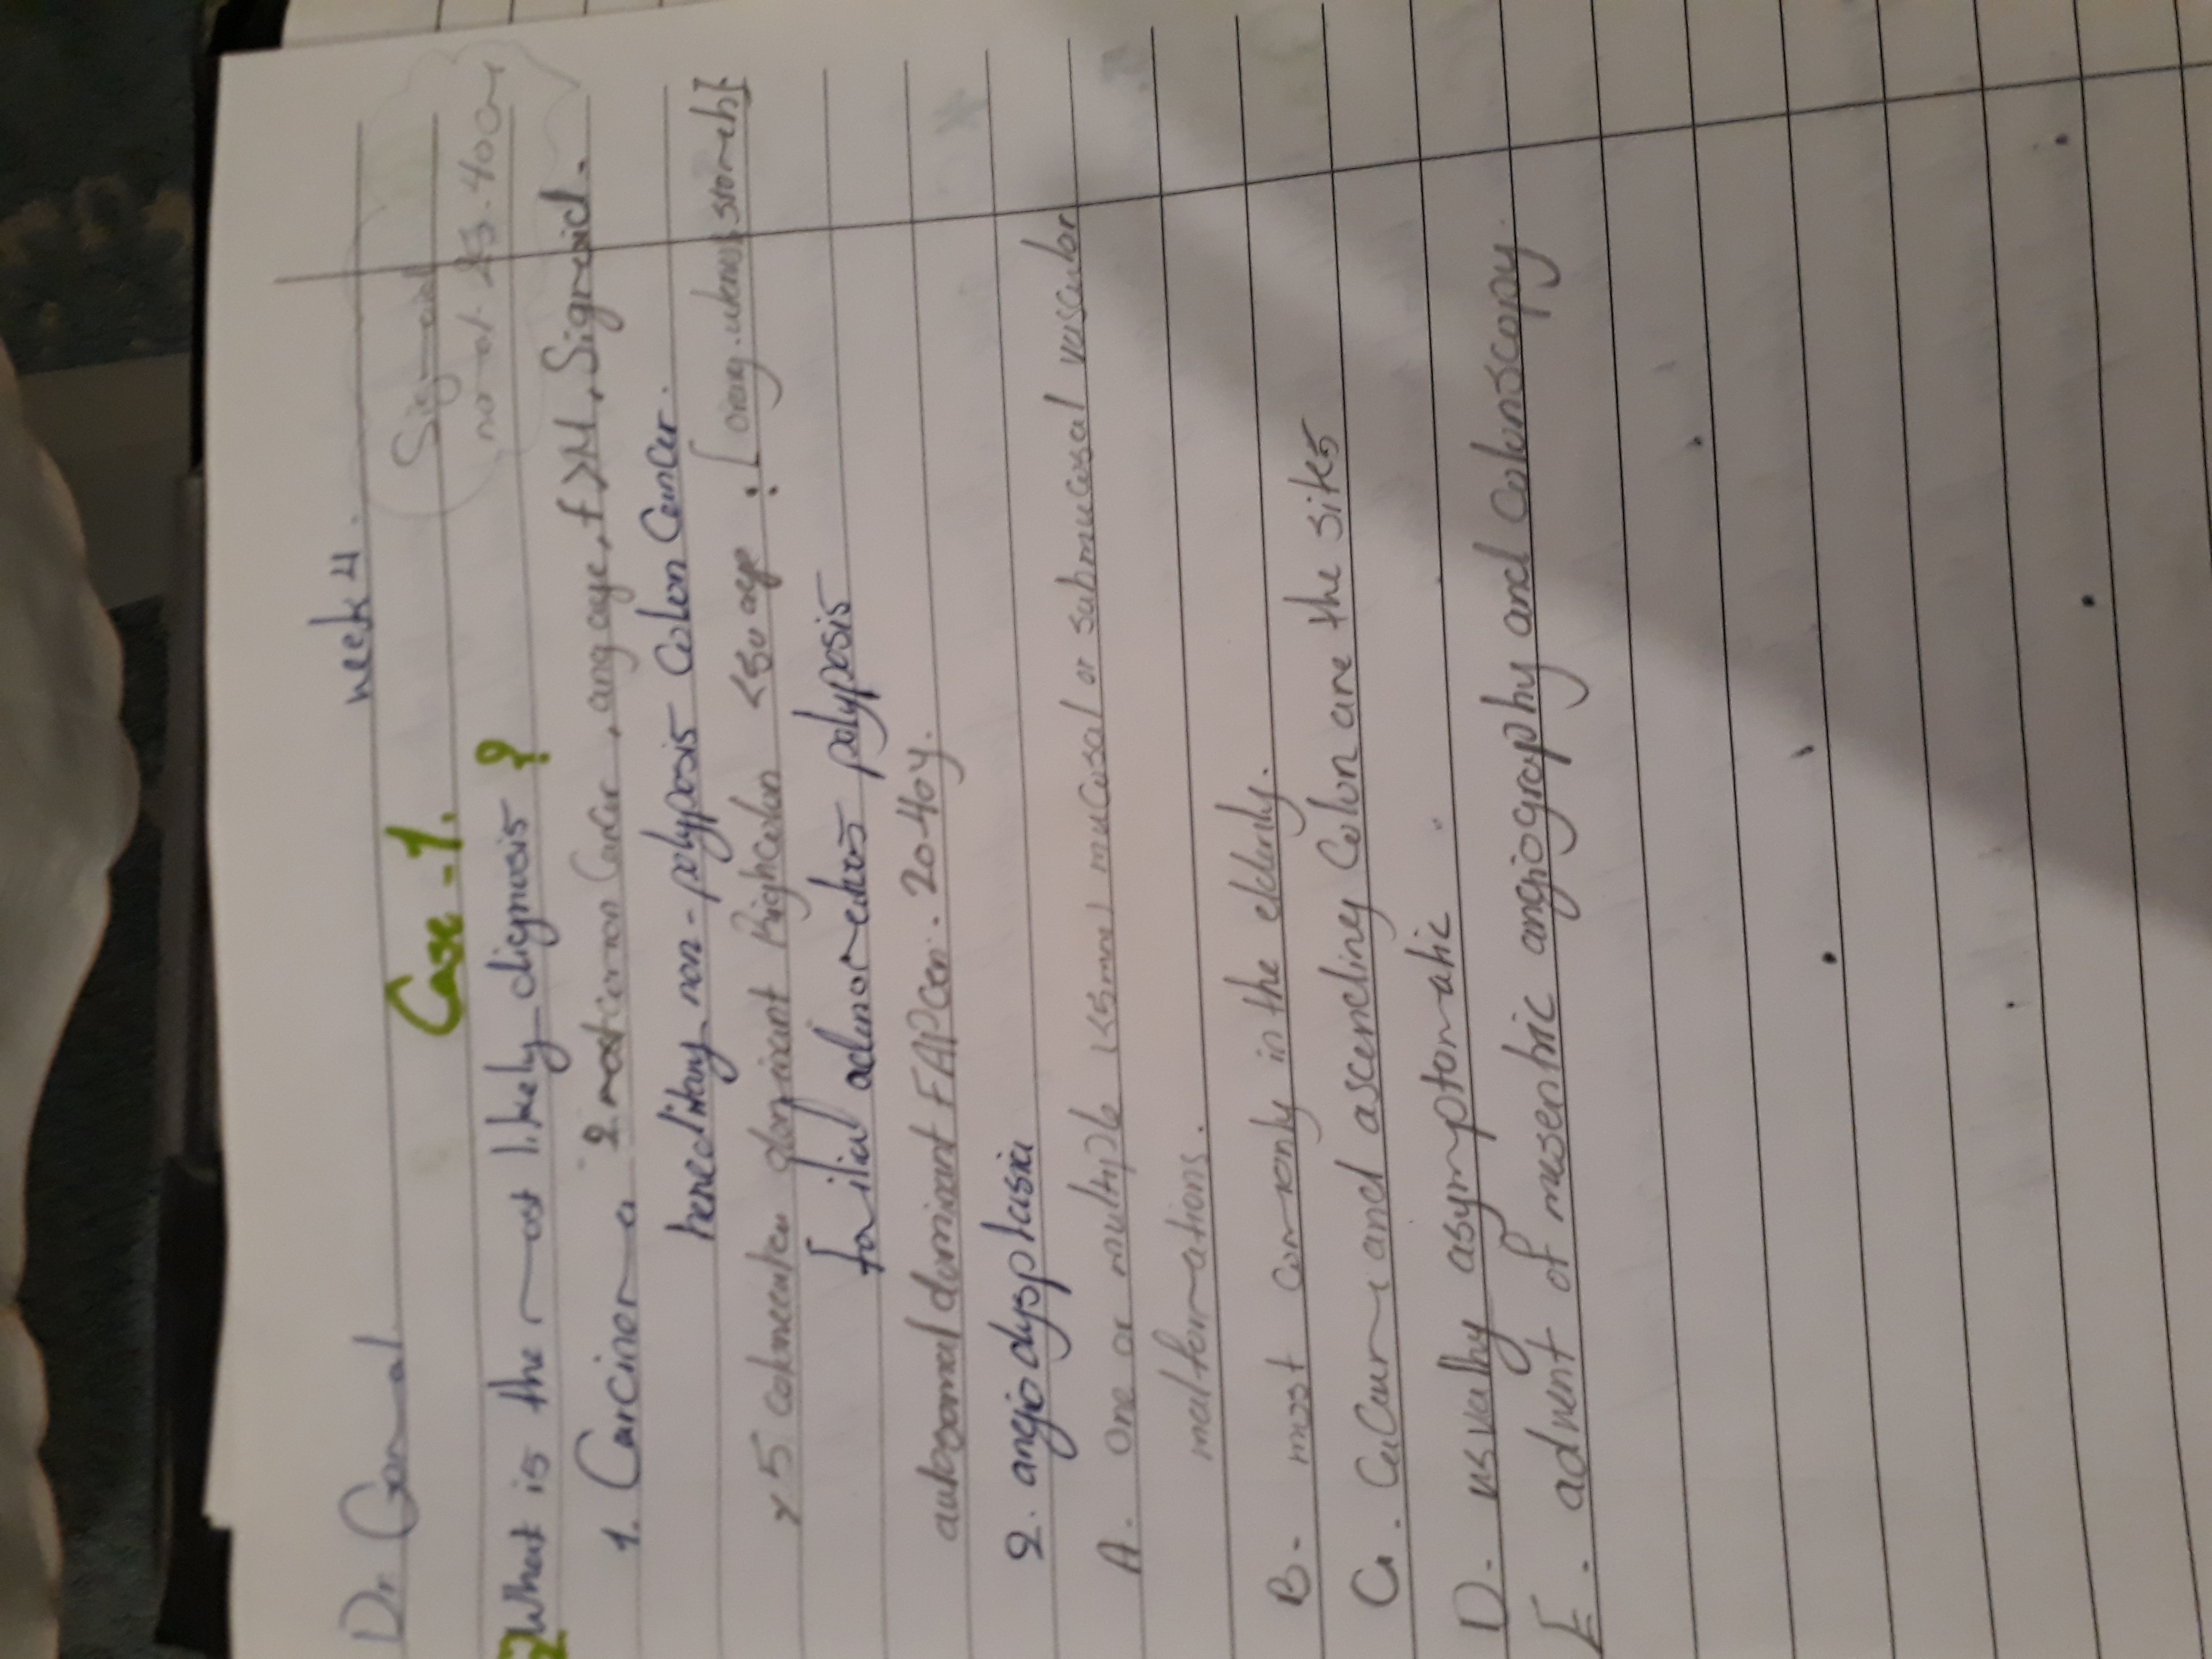 Dr Gamal week 4.
Case-1.
Sigmoid
What is the most likely diagnosis ?
1. Carcinoma 2 most common Cancer, any age, f>M, Sigmoid.
hereditary non-polyposis Colon Cancer.
dominant Right colon <50 age : [ ovary-uterus stomch]
familial adenomatous polyposis
autosomal dominant FAP Gen. 20-40y.
2. angiodysplasia
A. one or multiple (<5mm) mucosal or submucosal vascular
malformations.
B- most commonly in the elderly.
C. Cecum and ascending Colon are the sites
D- usually asymptomatic
E. advent of mesentric angiography and colonscopy.